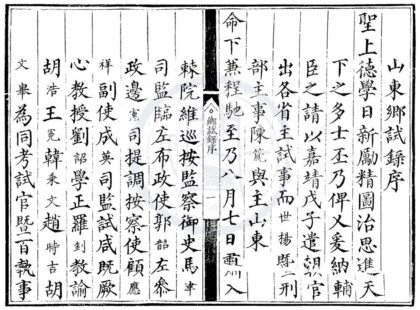 山東鄉試録序
聖上德學日新勵精圖治思進天
下之多士丕乃俾乂爰納輔
臣之請以嘉靖戊子遣朝官
出各省主試事而世揚曁刑
部主事陳與主山東
命下兼程馳至乃八月七日入
鄉試録序 一
棘院維巡按監察御史馬津
司監臨左布政使郭韶左參
政邊憲司提調按察使顧應
祥副使成英司監試咸既厥
心教授劉韶學正羅釗教諭
胡浩王寛韓文趙時吉胡
文舉為同考試官曁百執事